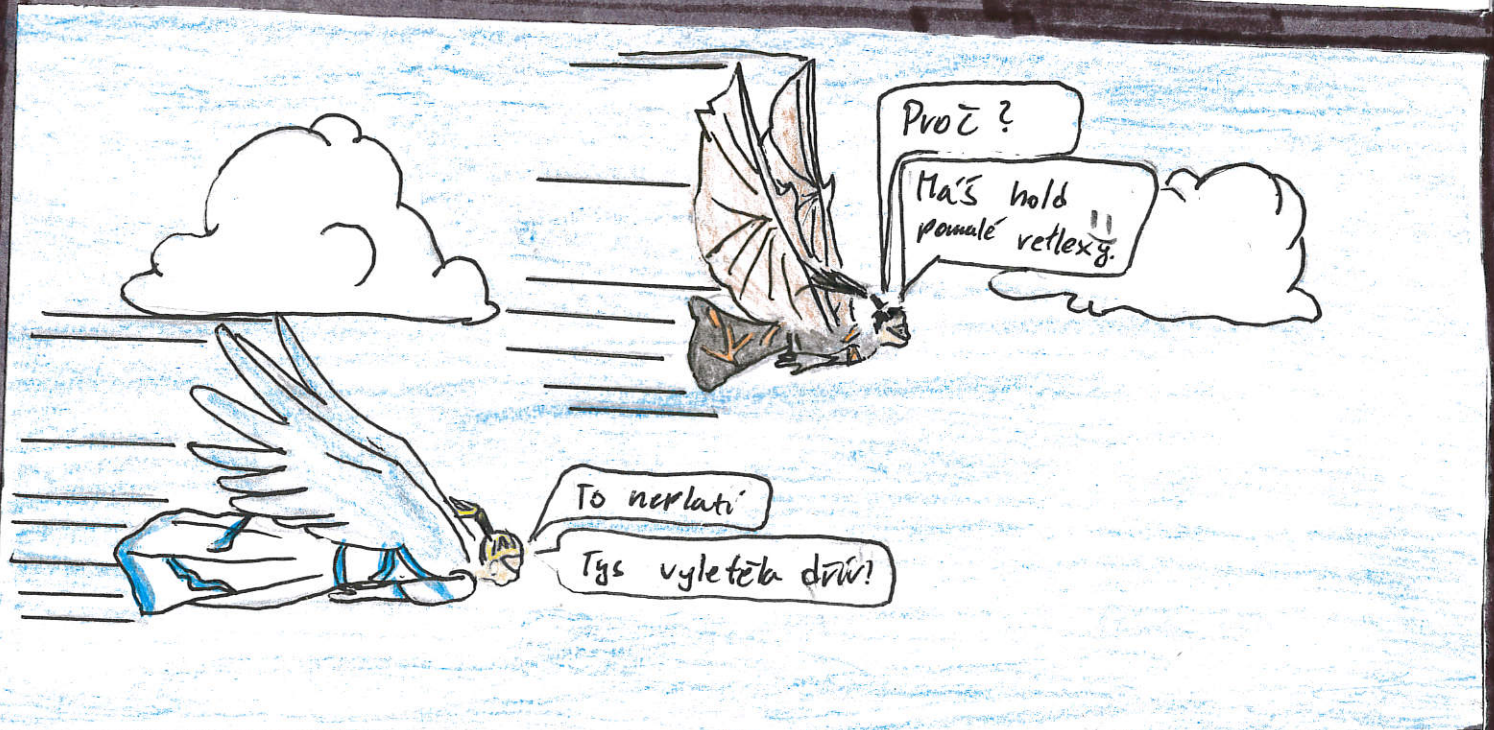 Proč?
Máš hold
pomalé reflexy.
To neplatí
Tys vyletěla dřív!